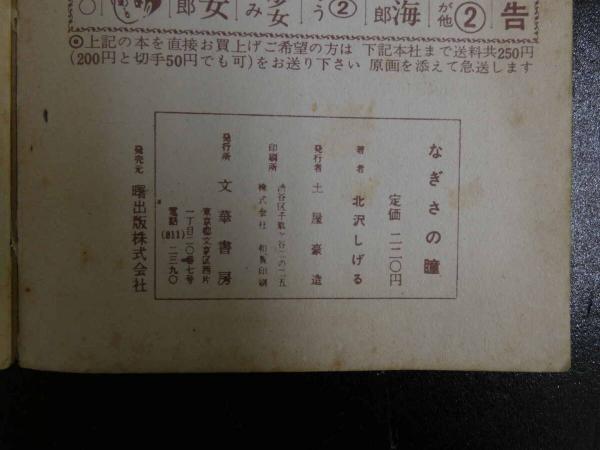 告
②
が他
海
郎
②
う
女
み
女
郎
◎上記の本を直接お買上げご希望の方は 下記本社まで送料共250円
(200円と切手50円でも可)をお送り下さい 原画を添えて急送します
なぎさの瞳
定価 二二〇円
著者 北沢しげる
発行者 土屋豪造
印刷所 渋谷区千駄ヶ谷二の二五
株式会社 和製印刷
発行所 文華書房
東京都文京区西片
一丁目二〇番七号
電話 (811) 二三九〇
発売元 曙出版株式会社